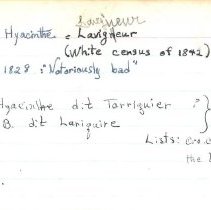 Lavigneur
Hyacinthe = Lavigneur
(White census of 1842)
1828 : "Notoriously bad"
Hyacinthe dit Tarriguier ?
B. dit Lariguire
Lists:
the